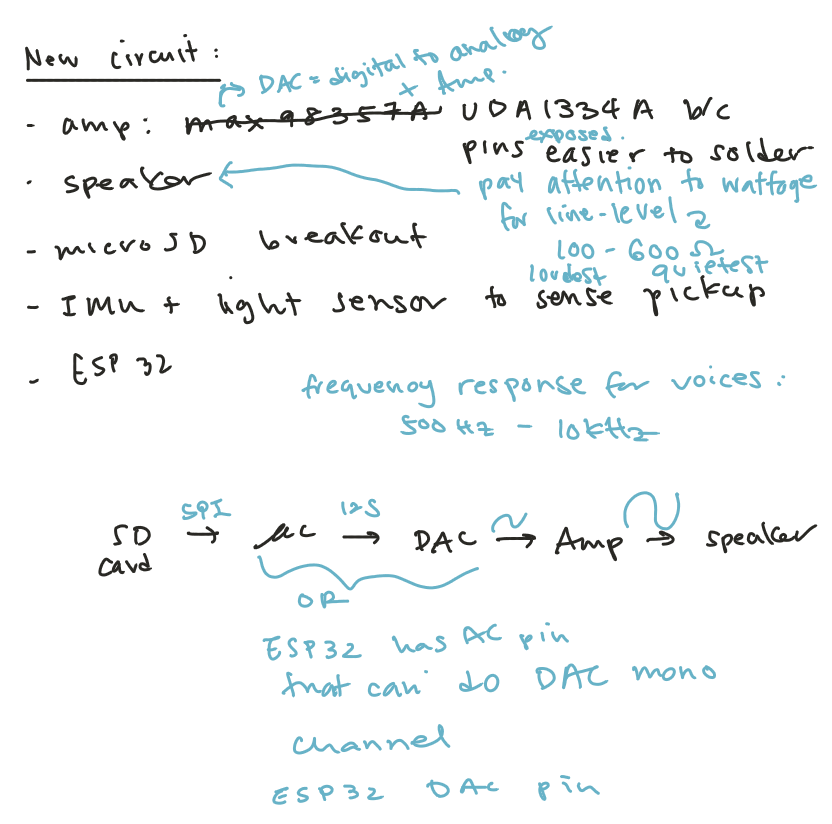 New circuit:
DAC = digital to analog
+ Amp.
- amp: max98357A UDA1334A b/c
exposes.
pins easier to solder
- speaker
pay attention to wattage
for line-level
- microSD breakout
100 - 600 Ω
loudest quietest
- IMU + light sensor to sense pickup
- ESP 32
frequency response for voices:
500 Hz - 10kHz
SPI I2S
SD → µc → DAC → Amp → speaker
card
OR
ESP32 has AC pin
that can do DAC mono
channel
ESP32 DAC pin